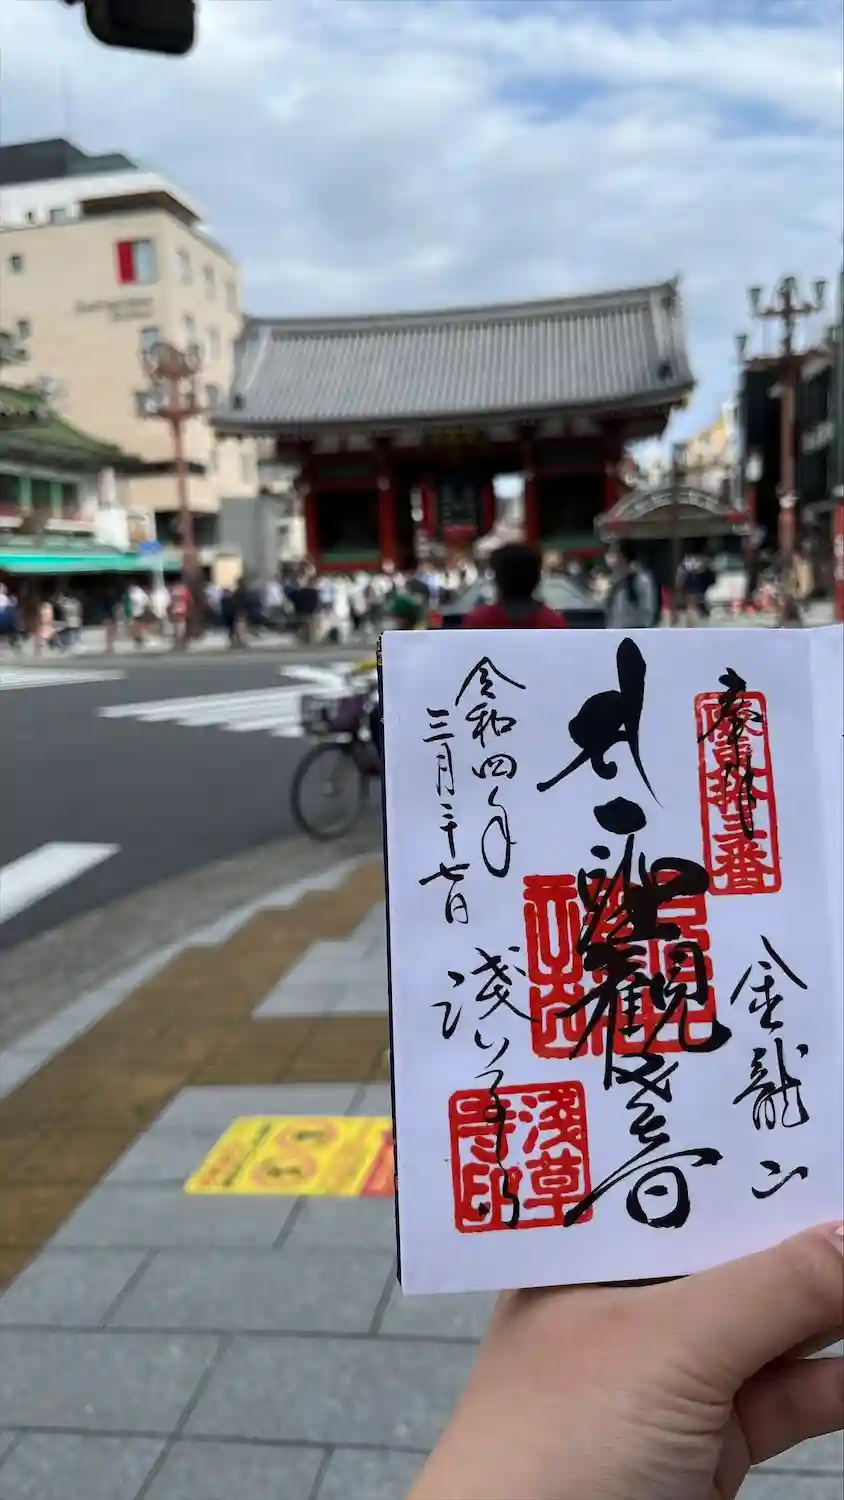 奉拝
坂東拾三番
金龍山
聖観世音
令和四年
三月二十七日
浅草寺
淺草
寺印